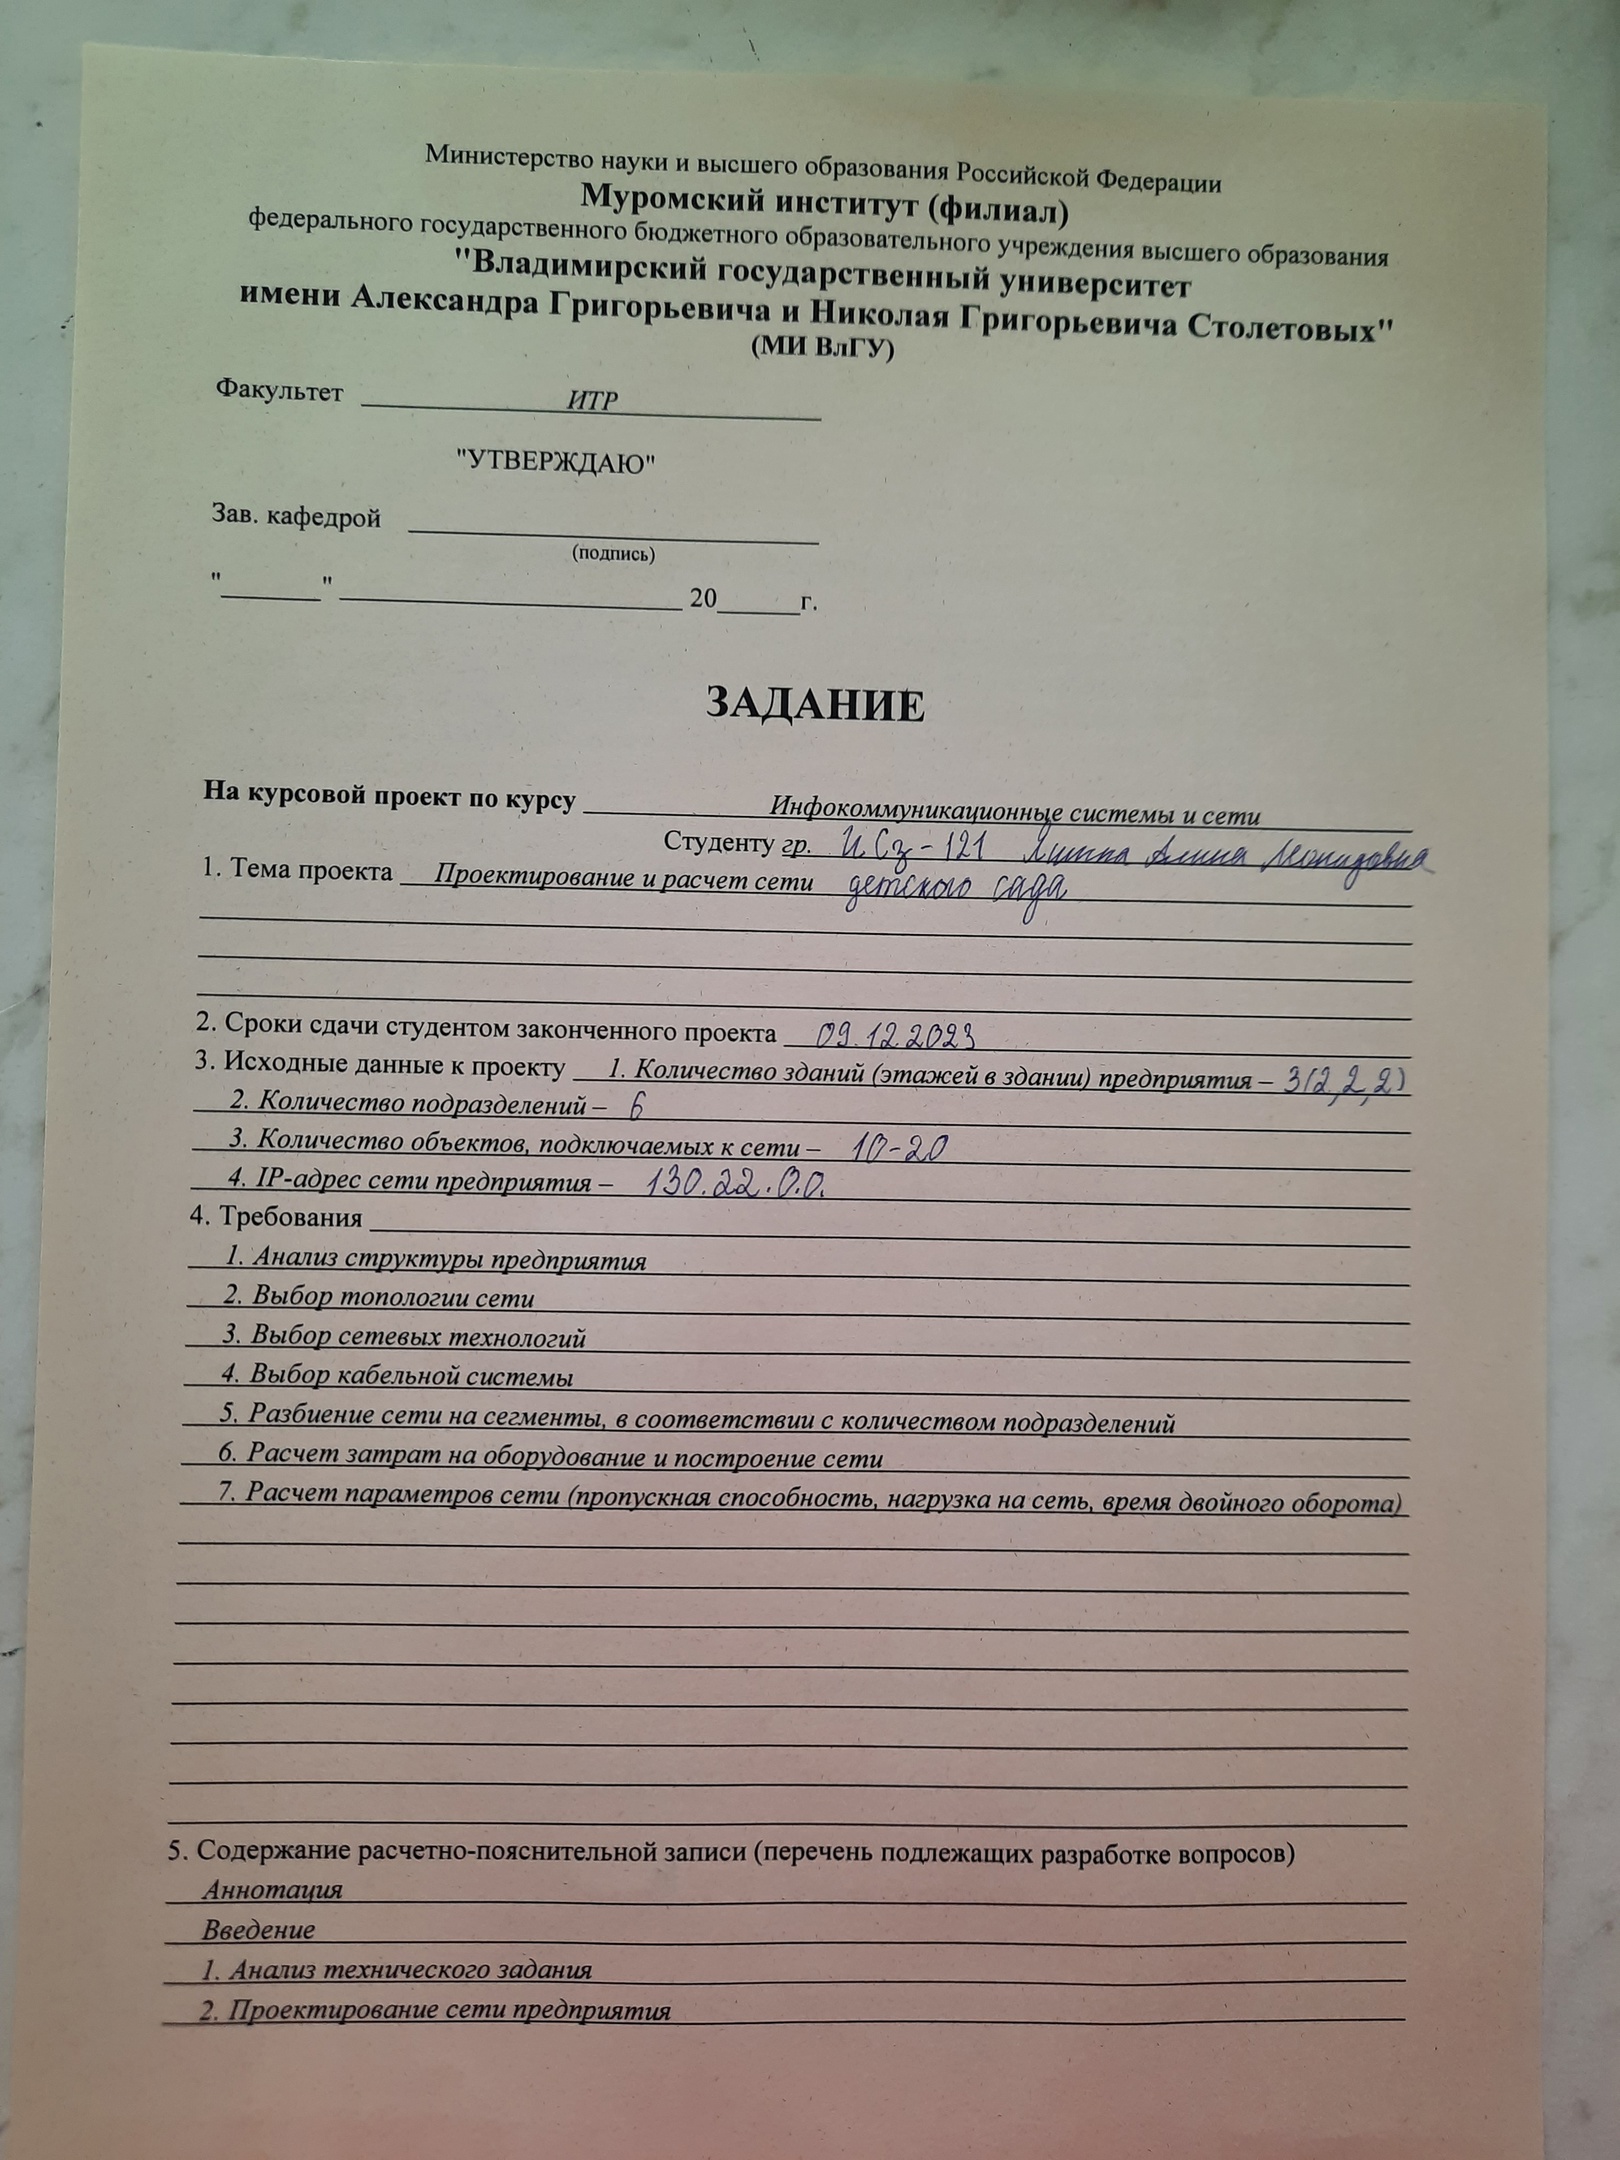 Министерство науки и высшего образования Российской Федерации
Муромский институт (филиал)
федерального государственного бюджетного образовательного учреждения высшего образования
"Владимирский государственный университет
имени Александра Григорьевича и Николая Григорьевича Столетовых"
(МИ ВлГУ)
Факультет ИТР
"УТВЕРЖДАЮ"
Зав. кафедрой
(подпись)
"______" ______ 20_____г.
ЗАДАНИЕ
На курсовой проект по курсу Инфокоммуникационные системы и сети
Студенту гр. ИСз-121 Алина
1. Тема проекта Проектирование и расчет сети детского сада
2. Сроки сдачи студентом законченного проекта 09.12.2023
3. Исходные данные к проекту 1. Количество зданий (этажей в здании) предприятия – 3(2,2,2)
2. Количество подразделений – 6
3. Количество объектов, подключаемых к сети – 10-20
4. IP-адрес сети предприятия – 130.22.0.0.
4. Требования
1. Анализ структуры предприятия
2. Выбор топологии сети
3. Выбор сетевых технологий
4. Выбор кабельной системы
5. Разбиение сети на сегменты, в соответствии с количеством подразделений
6. Расчет затрат на оборудование и построение сети
7. Расчет параметров сети (пропускная способность, нагрузка на сеть, время двойного оборота)
5. Содержание расчетно-пояснительной записи (перечень подлежащих разработке вопросов)
Аннотация
Введение
1. Анализ технического задания
2. Проектирование сети предприятия